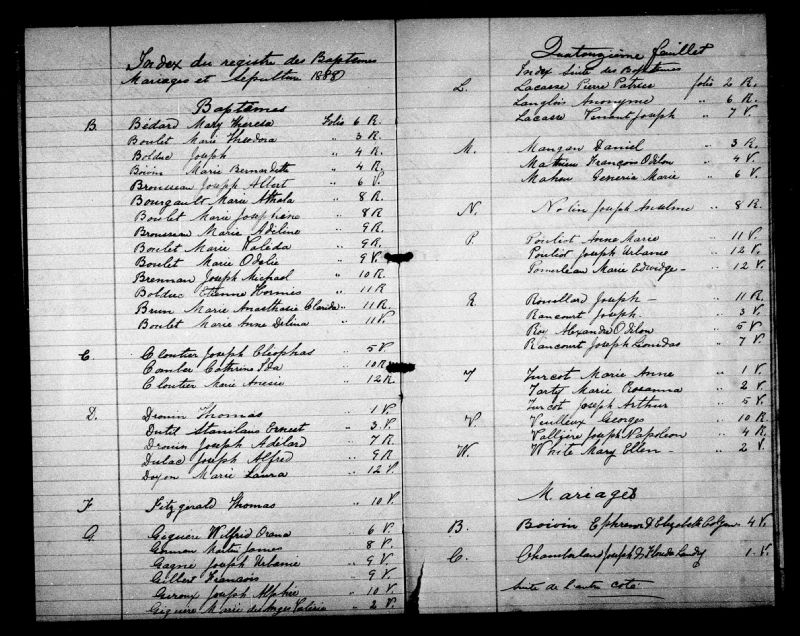 Index du registre des Baptemes
Mariages et Sepulture 1888
Baptemes
B. Bédard Mary Theresa Folio 6 R.
Boulet Marie Theodora " 3 R.
Bolduc Joseph " 4 R.
Boivin Marie Bernadette " 4 R.
Brousseau Joseph Albert " 6 V.
Bourgault Marie Athala " 8 R.
Boulet Marie Josephine " 8 R
Brousseau Marie Adeline " 9 R.
Boulet Marie Valéda " 9 R.
Boulet Marie Odelie " 9 V.
Brennan Joseph Michael " 10 R.
Bolduc Etienne Hormies " 11 R
Brun Marie Anasthasie Clarida " 11 R.
Boulet Marie Anne Delina " 11 V.
C. Cloutier Joseph Cléophas " 5 V.
Comber Cathrine Ida " 10 R.
Cloutier Marie Anesie " 12 R.
D. Drouin Thomas " 1 V.
Dutil Stanilaus Ernest " 3 V.
Drouin Joseph Adélard " 7 R
Dulac Joseph Alfred " 9 R
Doyon Marie Laura " 12 V
F Fitzgerald Thomas " 10 V.
G. Giguère Wilfred 6 V.
Gorman Martin James " 8 V.
Gagné Joseph Urbanie " 9 V.
Gilbert François " 9 V.
Giroux Joseph Alphie " 10 V.
Giguère Marie des Anges Valeria " 2 V.
Quatorzième feuillet
Index Suite des Baptemes
L. Lacasse Pierre Patrice folio 2 R.
Langlois Anonyme " 6 R.
Lacasse Vincent Joseph " 7 V.
M. Mangan Daniel " 3 R.
Mathieu François Odilon " 4 V.
Maheu Generia Marie " 6 V.
N. Nolin Joseph Anselme " 8 R.
P. Pouliot Anne Marie 11 V.
Pouliot Joseph Urbanie " 12 V.
Pomerleau Marie Edwidge - " 12 V.
R Rouillard Joseph - " 11 R.
Rancourt Joseph. " 3 V.
Roy Alexandre Odilon " 5 V
Rancourt Joseph Leonidas " 7 V.
T Turcot Marie Anne " 1 V.
Tardy Marie Rosanna " 2 V.
Turcot Joseph Arthur " 5 V.
V. Veilleux Georges " 10 R
Vallière Joseph Napoleon " 4 R.
W. White Mary Ellen - " 2 V.
Mariages
B. Boivin Ephrem & Elizabeth 4 V.
C. Chamberland Joseph & Landry 1 V.
Suite de l'autre coté